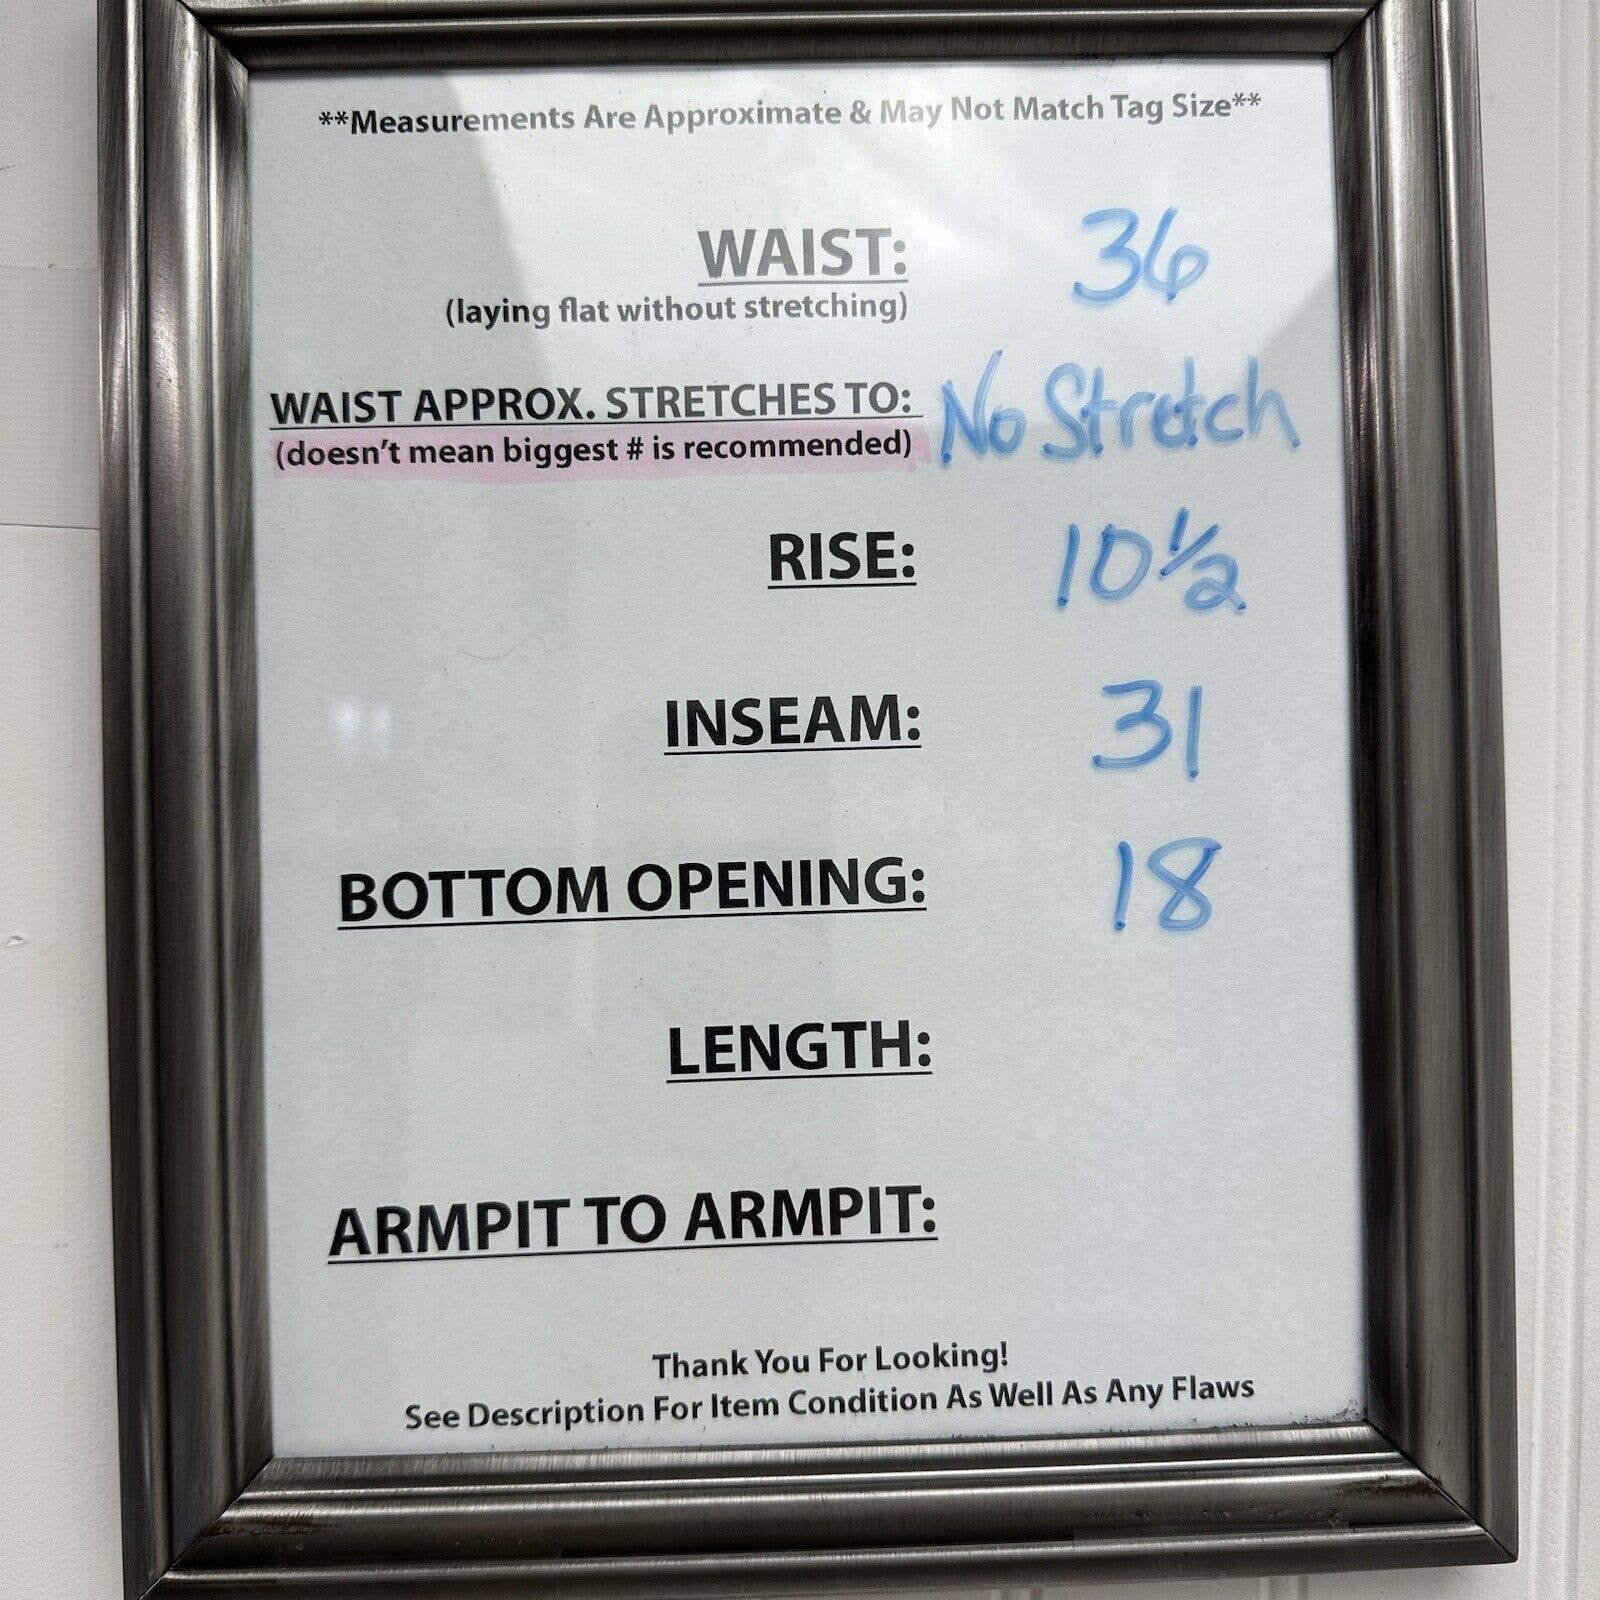 **Measurements Are Approximate & May Not Match Tag Size**
WAIST: 36
(laying flat without stretching)
WAIST APPROX. STRETCHES TO: No Stretch
(doesn't mean biggest # is recommended)
RISE: 10 1/2
INSEAM: 31
BOTTOM OPENING: 18
LENGTH:
ARMPIT TO ARMPIT:
Thank You For Looking!
See Description For Item Condition As Well As Any Flaws